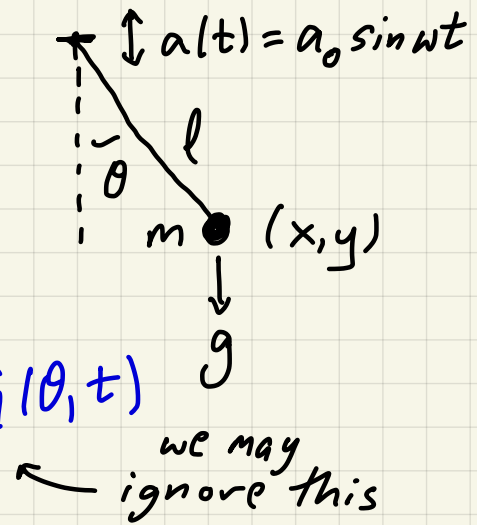 a(t) = a₀ sin ωt
l
θ
m (x,y)
g
(θ, t)
we may
ignore this